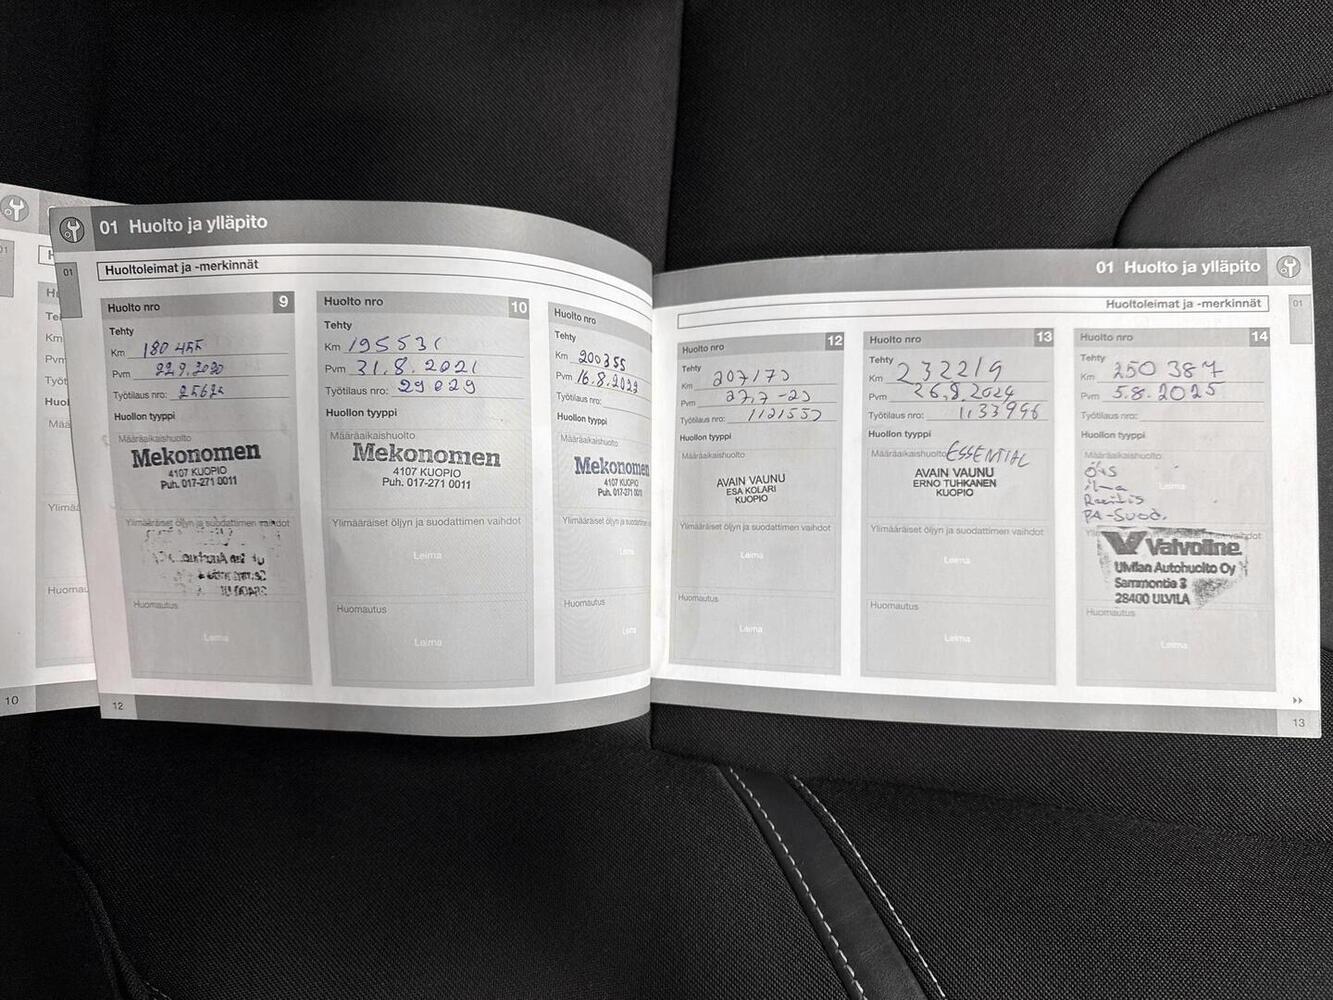 01 Huolto ja ylläpito
Huoltoleimat ja -merkinnät
01
Huolto nro 9
Tehty
Km 180 455
Pvm 22.9.2020
Työtilaus nro:
Huollon tyyppi
Määräaikaishuolto
Mekonomen
4107 KUOPIO
Puh. 017-271 0011
Ylimääräiset öljyn ja suodattimen vaihdot
Huomautus
Leima
Huolto nro 10
Tehty
Km 195531
Pvm 31.8.2021
Työtilaus nro: 29029
Huollon tyyppi
Määräaikaishuolto
Mekonomen
4107 KUOPIO
Puh. 017-271 0011
Ylimääräiset öljyn ja suodattimen vaihdot
Leima
Huomautus
Leima
Huolto nro
Tehty
Km 200355
Pvm 16.8.2022
Työtilaus nro:
Huollon tyyppi
Määräaikaishuolto
Mekonomen
4107 KUOPIO
Puh. 017-271 0
Ylimääräiset öljyn ja su
Leima
Huomautus
Leima
12
01 Huolto ja ylläpito
Huoltoleimat ja -merkinnät
01
Huolto nro 12
Tehty
Km 207173
Pvm 27.7-23
Työtilaus nro: 1121553
Huollon tyyppi
Määräaikaishuolto
AVAIN VAUNU
ESA KOLARI
KUOPIO
Ylimääräiset öljyn ja suodattimen vaihdot
Leima
Huomautus
Leima
Huolto nro 13
Tehty
Km 232219
Pvm 26.8.2024
Työtilaus nro: 1133996
Huollon tyyppi
Määräaikaishuolto ESSENTIAL
AVAIN VAUNU
ERNO TUHKANEN
KUOPIO
Ylimääräiset öljyn ja suodattimen vaihdot
Leima
Huomautus
Leima
Huolto nro 14
Tehty
Km 250 387
Pvm 5.8.2025
Työtilaus nro:
Huollon tyyppi
Määräaikaishuolto
Ö+S
ilma
Raitis
PA-Suod.
Leima
Valvoline
Ulvilan Autohuolto Oy
Sammontie 3
28400 ULVILA
Huomautus
Leima
13
10